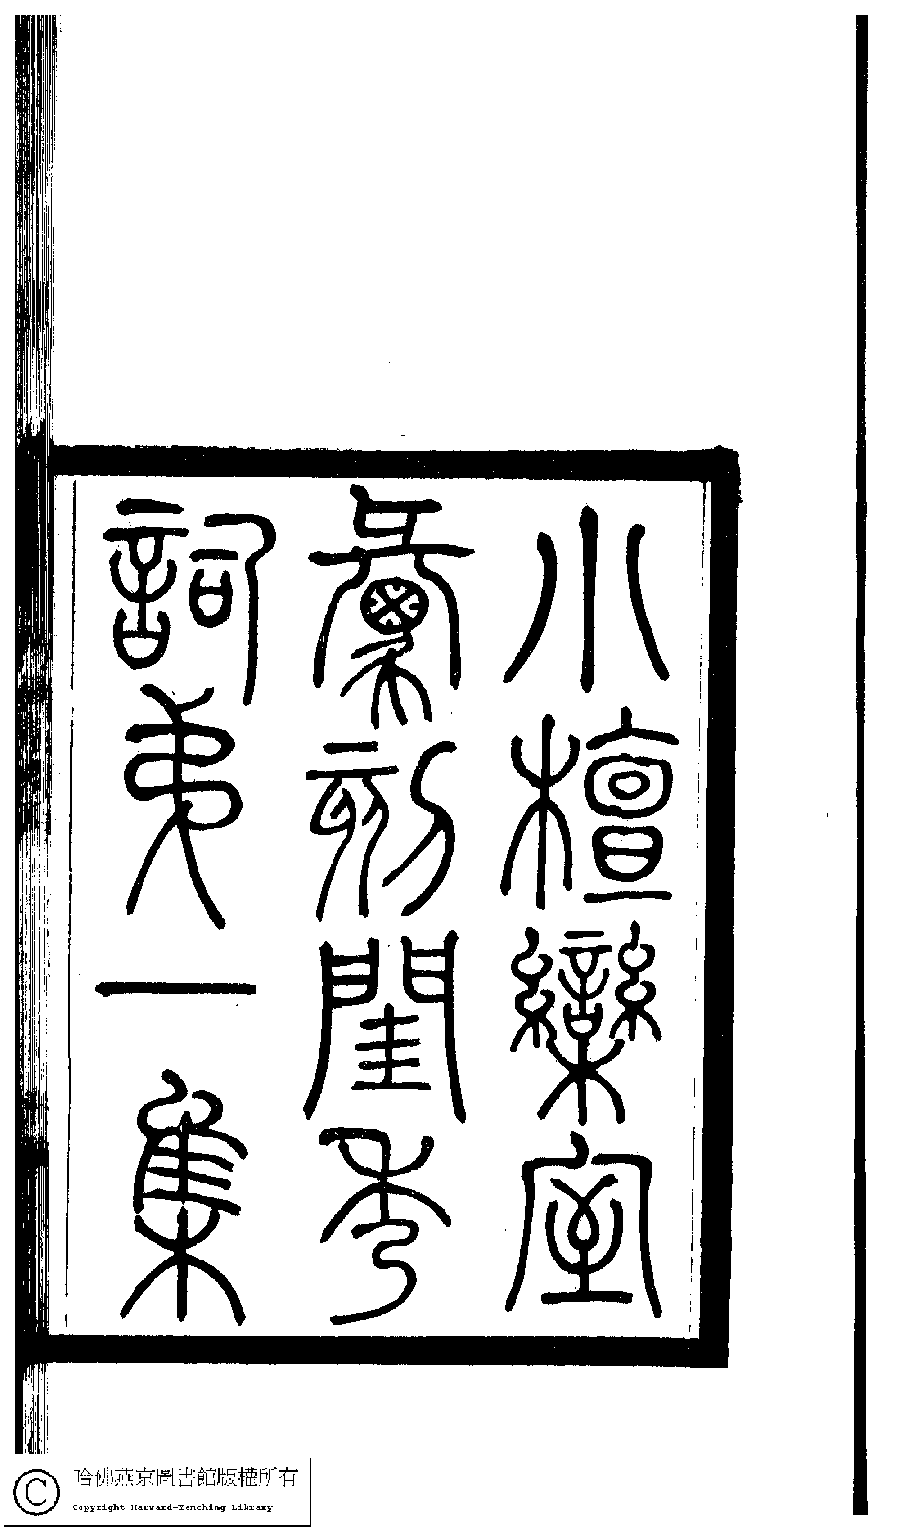 小檀欒室
彙刻閨秀
詞弟一集
哈佛燕京圖書館版權所有
Copyright Harvard-Yenching Library